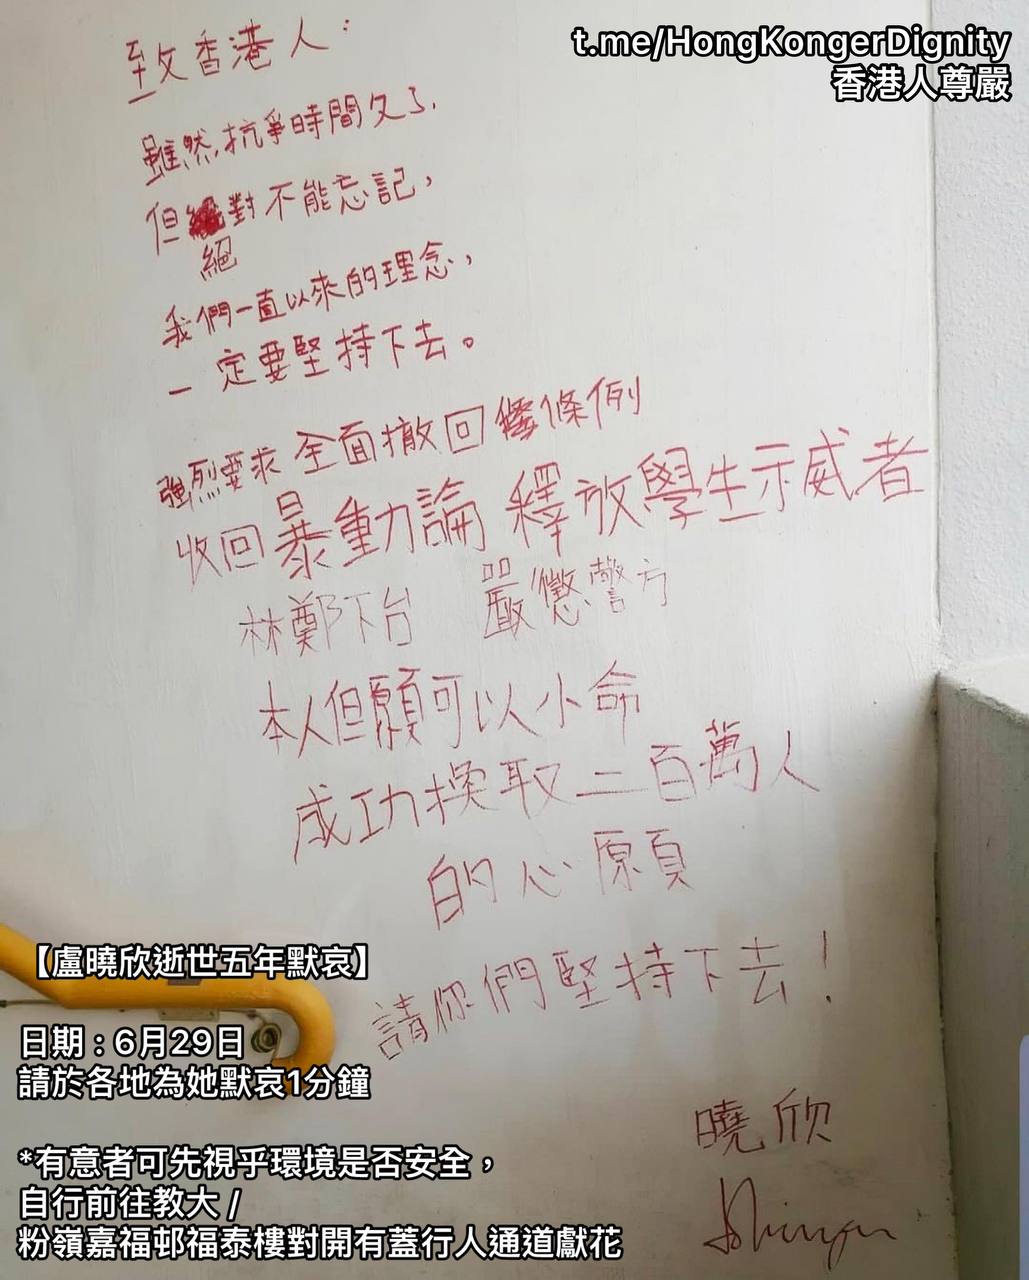 t.me/HongKongerDignity
香港人尊嚴
致香港人：
雖然，抗爭時間久了，
但絕對不能忘記，
我們一直以來的理念，
一定要堅持下去。
強烈要求 全面撤回條例
收回暴動論 釋放學生示威者
林鄭下台 嚴懲警方
本人但願可以小命
成功換取二百萬人
的心願
請你們堅持下去！
曉欣
【盧曉欣逝世五年默哀】
日期：6月29日
請於各地為她默哀1分鐘
*有意者可先視乎環境是否安全，
自行前往教大 /
粉嶺嘉福邨福泰樓對開有蓋行人通道獻花